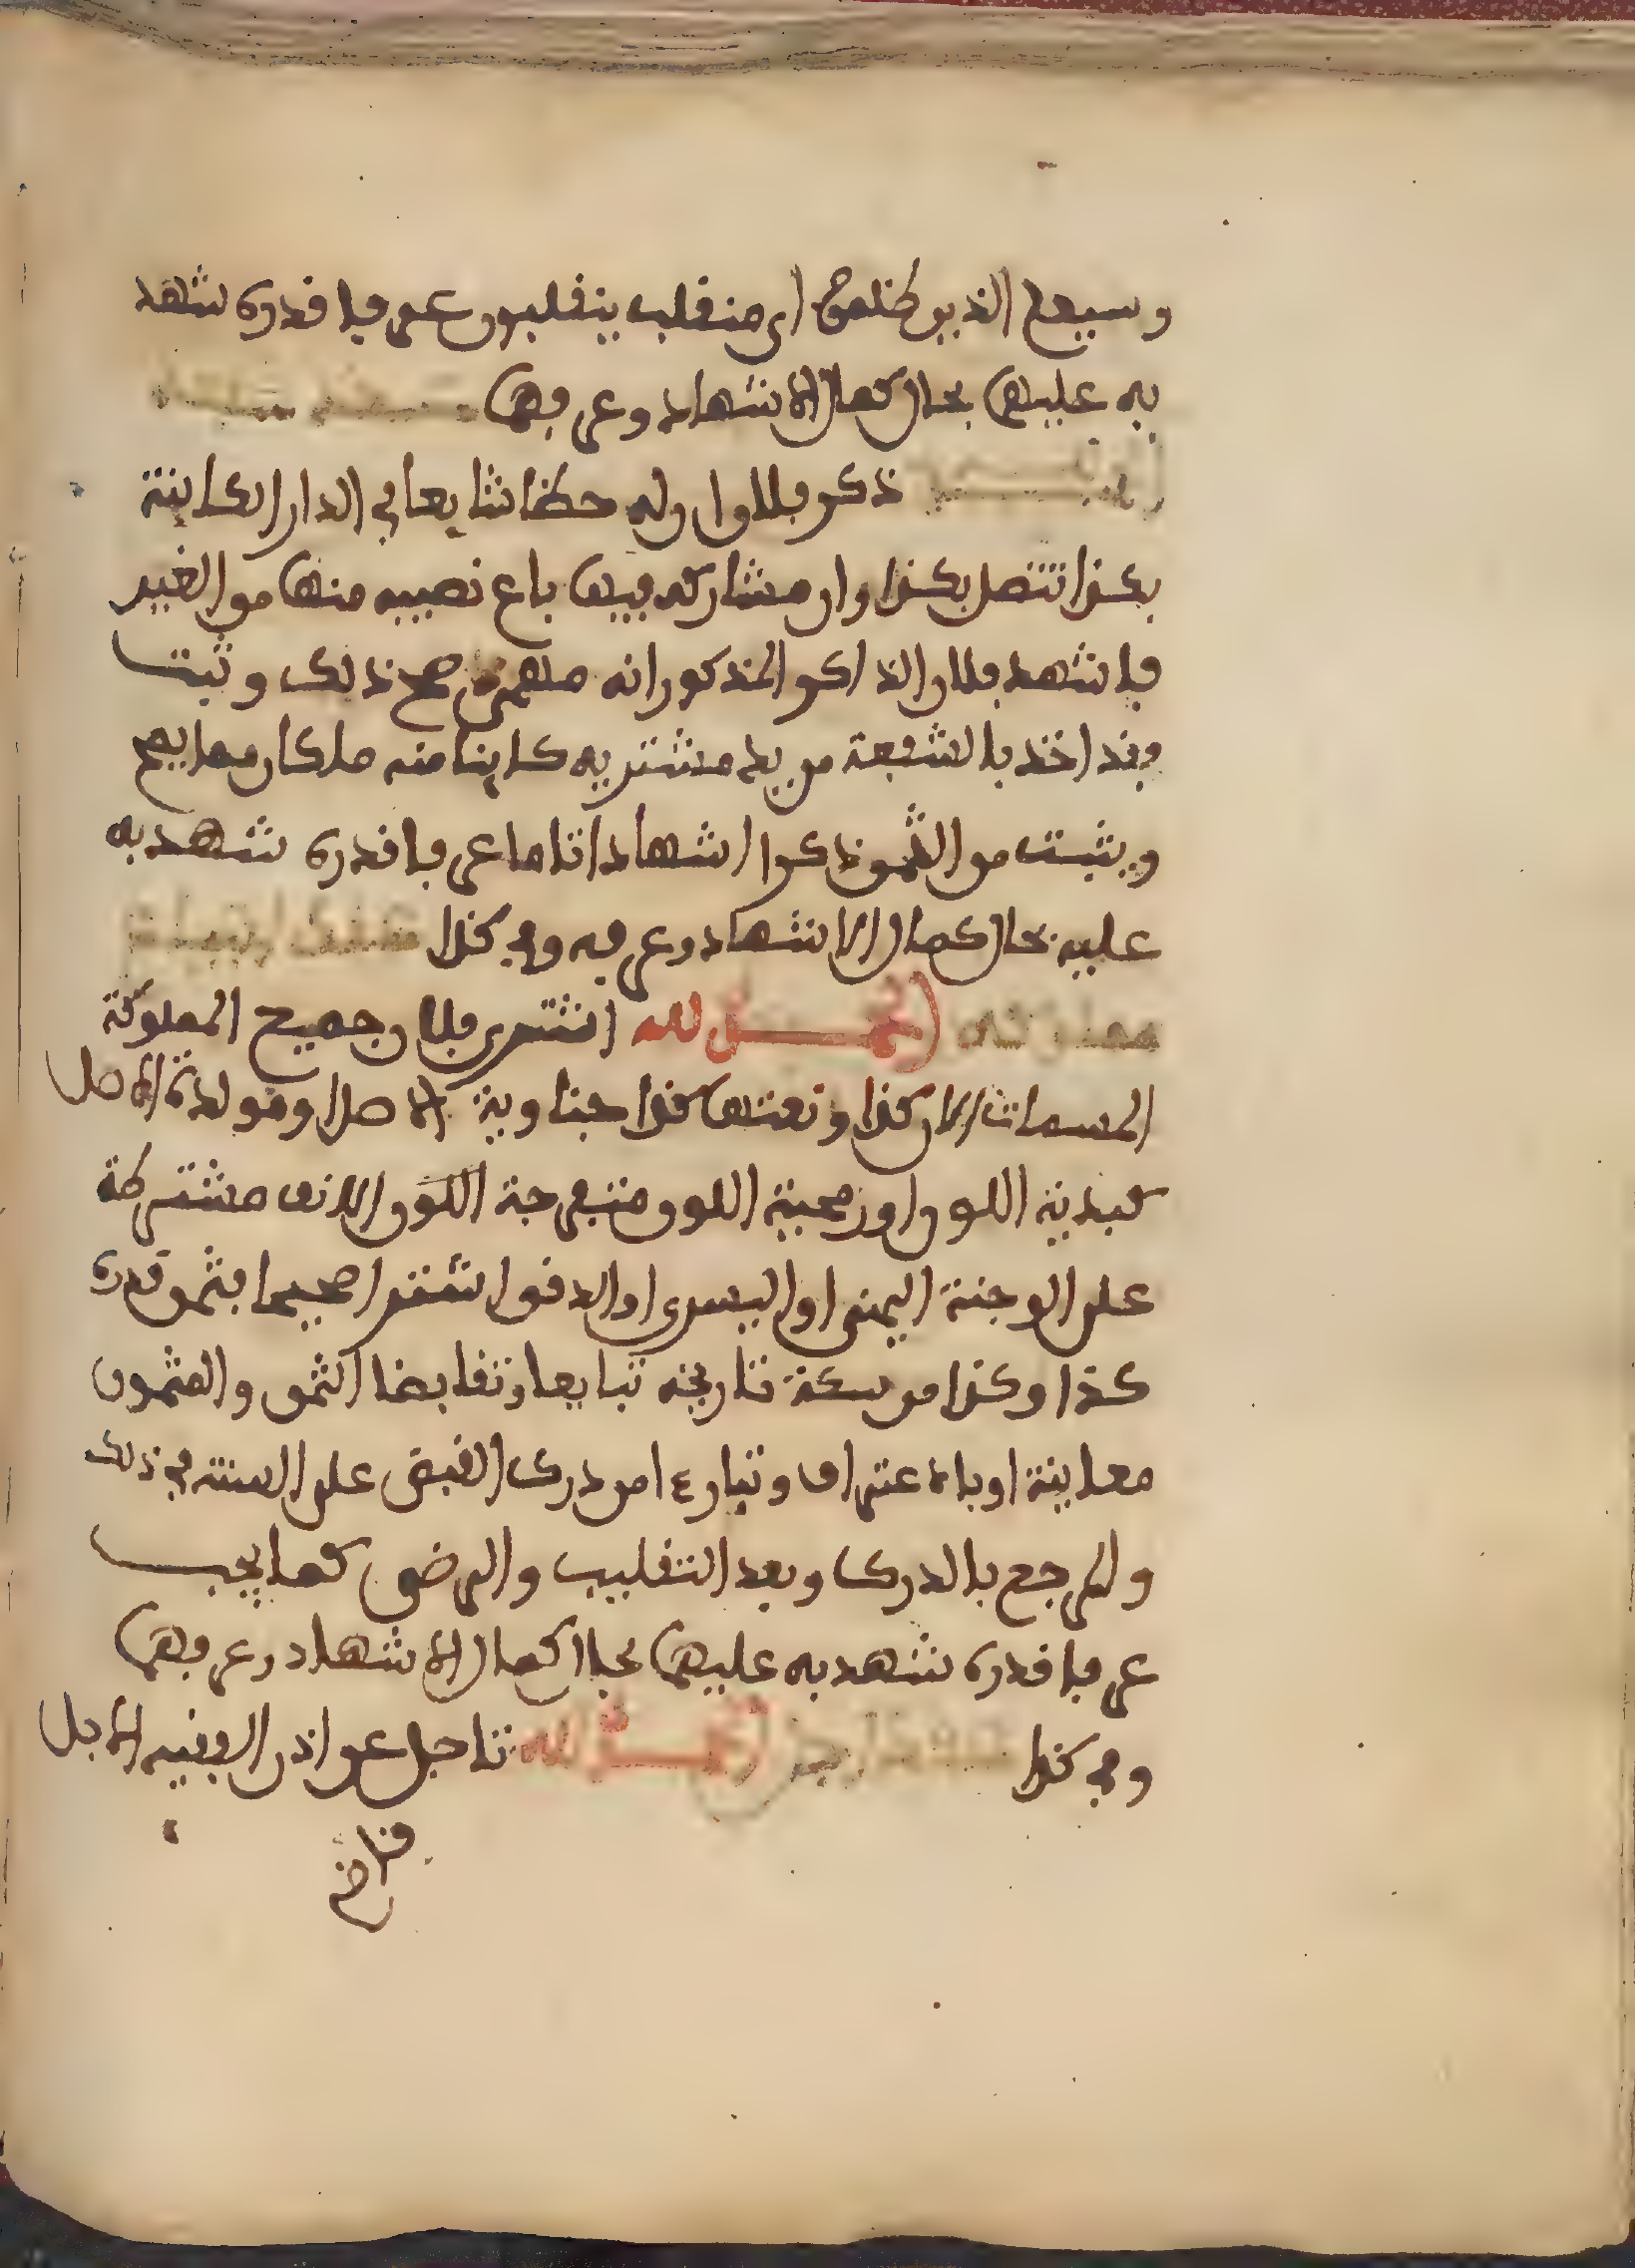 وسيعلم الذين ظلموا اي منقلب ينقلبون عرفا قدره شهد
به عليهما بحال كمال الاشهاد وعرفهما
ذكر فلان ان له حظا شايعا في الدار الكاينة
بكذا تتصل بكذا وان مشاركه فيها باع نصيبه منها من الغير
فاشهد فلان الذاكر المذكور انه مهمى صح ذلك وثبت
فقد اخذ بالشفعة من يد مشتريه كاينا منه ماكان مما يصح
ويثبت من الثمن ذكرا اشهادا تاما عرفا قدره شهد به
عليه بحال كمال الاشهاد وعرفه وفي كذا
الحمد لله اشترى فلان جميع المملوكة
المسمات الان كذا ونعتها كذا جناوية الاصل او مولدة الاصل
كبدية اللون او زمحبية اللون منبعرجة اللون الانف مشترطة
على الوجنة اليمنى او اليسرى او الدفن اشترا صحيحا بثمن قدره
كذا وكذا من سكة تاريخه تبايعا وتقابضا الثمن والمثمون
معاينة او باعتراف وتبارءا من درك القبض على السنة في ذلك
والمرجع بالدرك وبعد التقليب والرضى كما يجب
عرفا قدره شهد به عليهما بحال كمال الاشهاد وعرفهما
وفي كذا الحمد لله تاجل عن اذن الفقيه الاجل
قاض